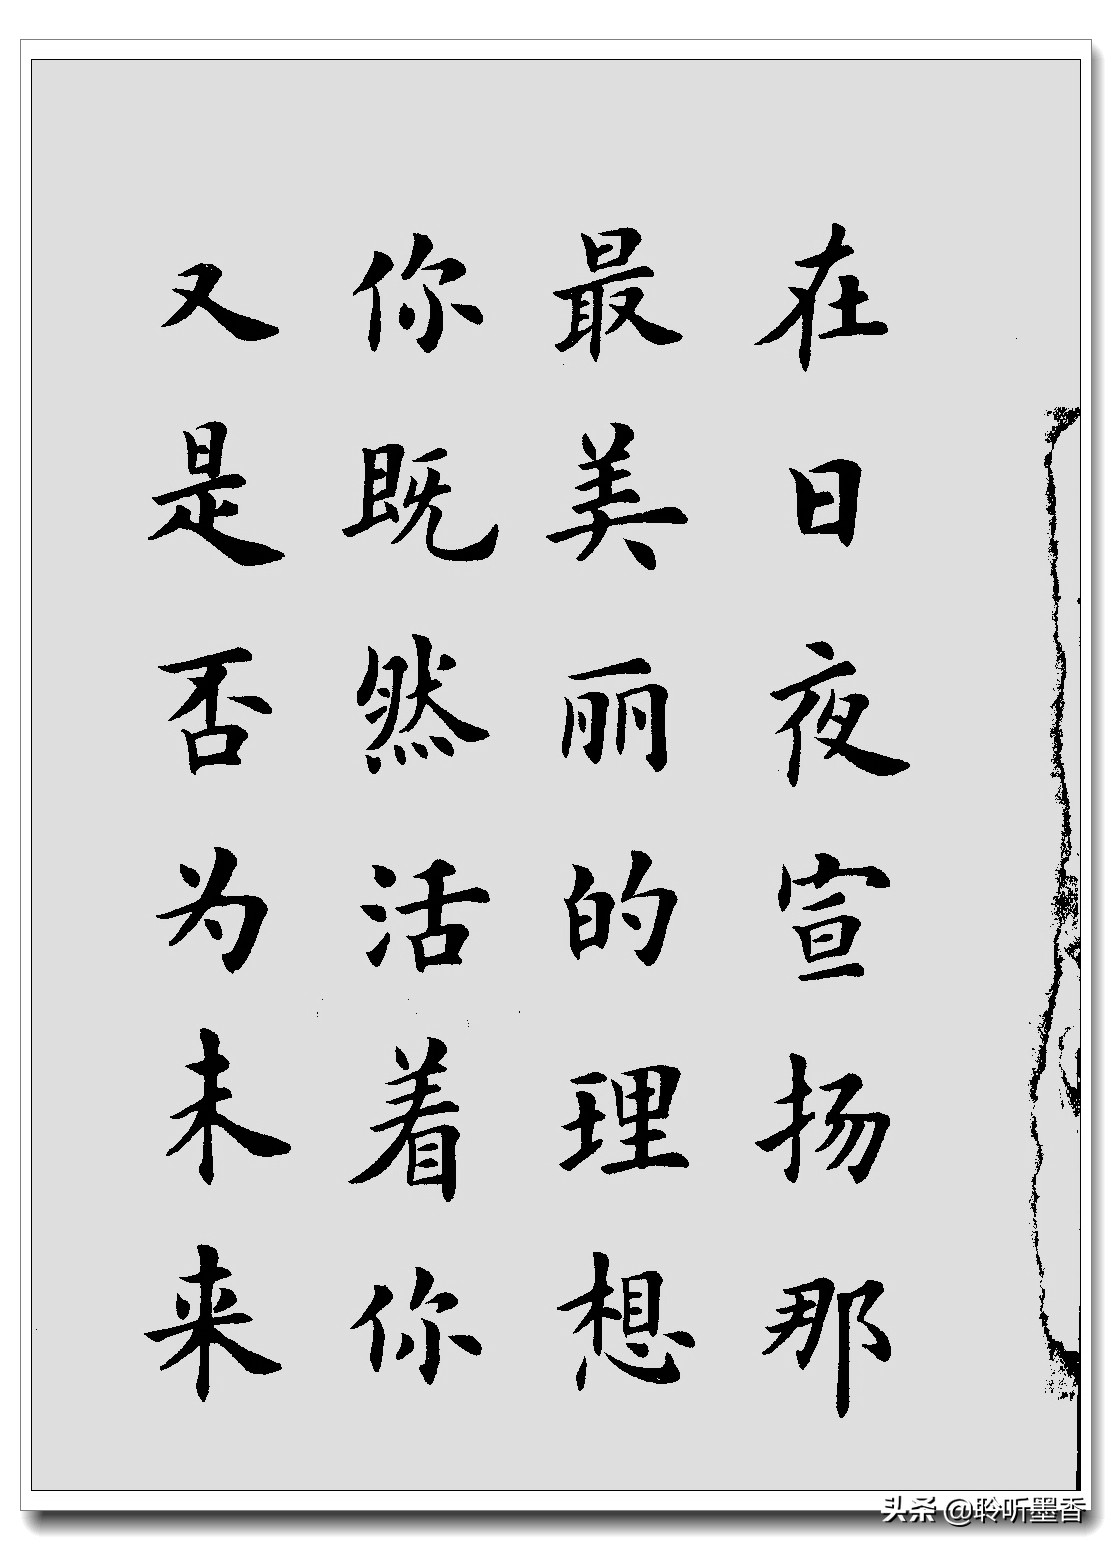 在日夜宣扬那
最美丽的理想
你既然活着你
又是否为未来
头条 @聆听墨香